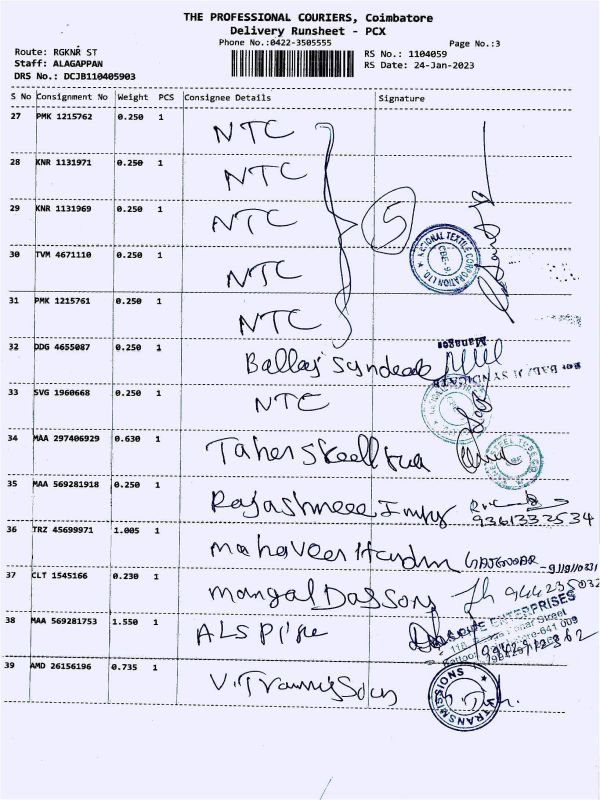 THE PROFESSIONAL COURIERS, Coimbatore
Delivery Runsheet - PCX
Phone No.:0422-3505555
Page No.:3
Route: RGKNR ST
Staff: ALAGAPPAN
DRS No.: DCJB110405903
RS No.: 1104059
RS Date: 24-Jan-2023
S No Consignment No Weight PCS Consignee Details Signature
27 PMK 1215762 0.250 1 NTC
28 KNR 1131971 0.250 1 NTC
29 KNR 1131969 0.250 1 NTC
5
NATIONAL TEXTILE CORPORATION LTD.
CBE-9
30 TVM 4671110 0.250 1 NTC
31 PMK 1215761 0.250 1 NTC
Manager
32 DDG 4655087 0.250 1
For BALAJI SYNDICATE
33 SVG 1960668 0.250 1 NTC
34 MAA 297406929 0.630 1 Taher Steel
35 MAA 569281918 0.250 1
9361333534
36 TRZ 45699971 1.005 1 mahaveer
37 CLT 1545166 0.230 1 mangal
ENTERPRISES
38 MAA 569281753 1.550 1 ALS Pipe
Street
39 AMD 26156196 0.735 1
TRANSMISSIONS